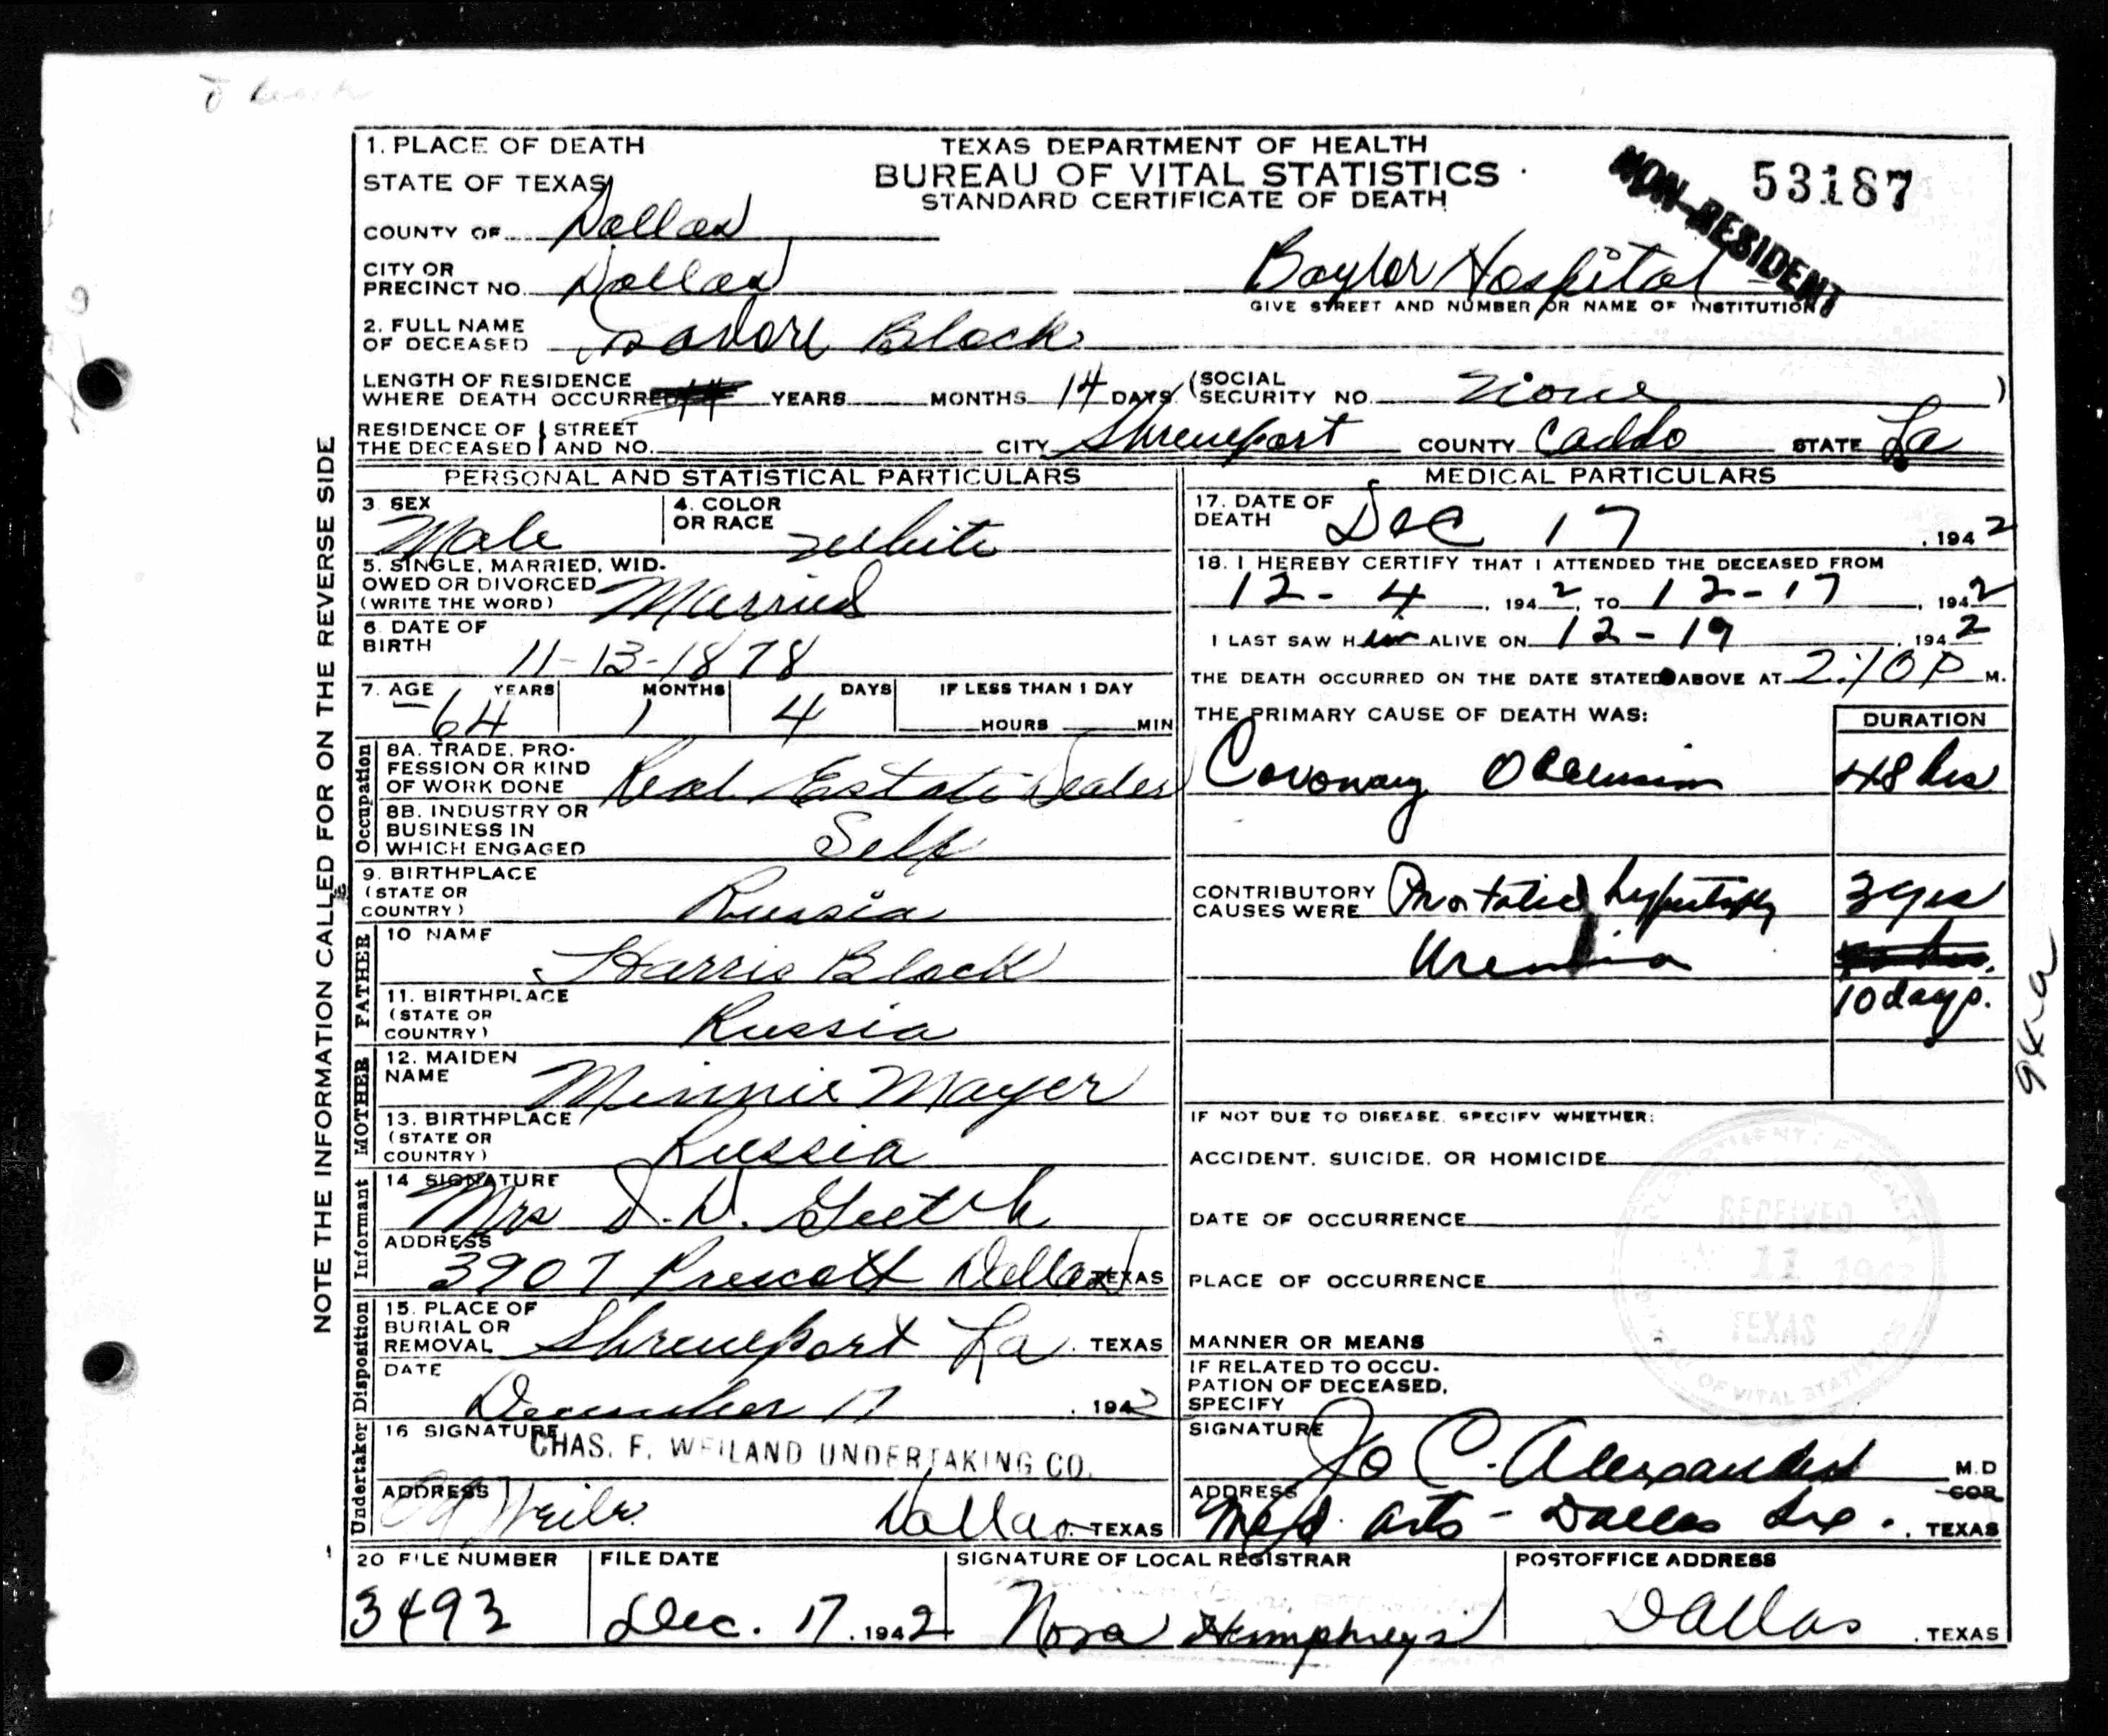 1. PLACE OF DEATH
TEXAS DEPARTMENT OF HEALTH
BUREAU OF VITAL STATISTICS
STANDARD CERTIFICATE OF DEATH
NON-RESIDENT
53187
STATE OF TEXAS
COUNTY OF Dallas
CITY OR PRECINCT NO. Dallas
Baylor Hospital
GIVE STREET AND NUMBER OR NAME OF INSTITUTION
2. FULL NAME OF DECEASED Isadore Block
LENGTH OF RESIDENCE WHERE DEATH OCCURRED YEARS MONTHS 14 DAYS (SOCIAL SECURITY NO. None )
RESIDENCE OF THE DECEASED STREET AND NO. CITY Shreveport COUNTY Caddo STATE La
NOTE THE INFORMATION CALLED FOR ON THE REVERSE SIDE
PERSONAL AND STATISTICAL PARTICULARS
3. SEX Male
4. COLOR OR RACE White
5. SINGLE, MARRIED, WIDOWED OR DIVORCED (WRITE THE WORD) Married
6. DATE OF BIRTH 11-13-1878
7. AGE 64 YEARS 1 MONTHS 4 DAYS IF LESS THAN 1 DAY HOURS MIN
Occupation
8A. TRADE, PROFESSION OR KIND OF WORK DONE Real Estate Dealer
8B. INDUSTRY OR BUSINESS IN WHICH ENGAGED Self
9. BIRTHPLACE (STATE OR COUNTRY) Russia
FATHER
10 NAME Harris Block
11. BIRTHPLACE (STATE OR COUNTRY) Russia
MOTHER
12. MAIDEN NAME Minnie Mayer
13. BIRTHPLACE (STATE OR COUNTRY) Russia
Informant
14 SIGNATURE Mrs
ADDRESS 3907 Prescott Dallas TEXAS
Disposition
15. PLACE OF BURIAL OR REMOVAL Shreveport La. TEXAS
DATE December 17, 1942
Undertaker
16 SIGNATURE CHAS. F. WEILAND UNDERTAKING CO.
ADDRESS Dallas TEXAS
MEDICAL PARTICULARS
17. DATE OF DEATH Dec 17, 1942
18. I HEREBY CERTIFY THAT I ATTENDED THE DECEASED FROM
12-4, 1942, TO 12-17, 1942
I LAST SAW Him ALIVE ON 12-19, 1942
THE DEATH OCCURRED ON THE DATE STATED ABOVE AT 2:10 P M.
THE PRIMARY CAUSE OF DEATH WAS: DURATION
Coronary Occlusion 48 hrs
CONTRIBUTORY CAUSES WERE Prostatic hypertrophy 3 yrs
Uremia
10 days.
94a
IF NOT DUE TO DISEASE, SPECIFY WHETHER:
ACCIDENT, SUICIDE, OR HOMICIDE
DATE OF OCCURRENCE
PLACE OF OCCURRENCE
MANNER OR MEANS
IF RELATED TO OCCUPATION OF DECEASED, SPECIFY
RECEIVED
11 1943
TEXAS
SIGNATURE Jo C. Alexander M.D
COR
ADDRESS Med. Arts - Dallas Tex. TEXAS
20 FILE NUMBER 3493
FILE DATE Dec. 17, 1942
SIGNATURE OF LOCAL REGISTRAR Nora Humphreys
POSTOFFICE ADDRESS Dallas, TEXAS